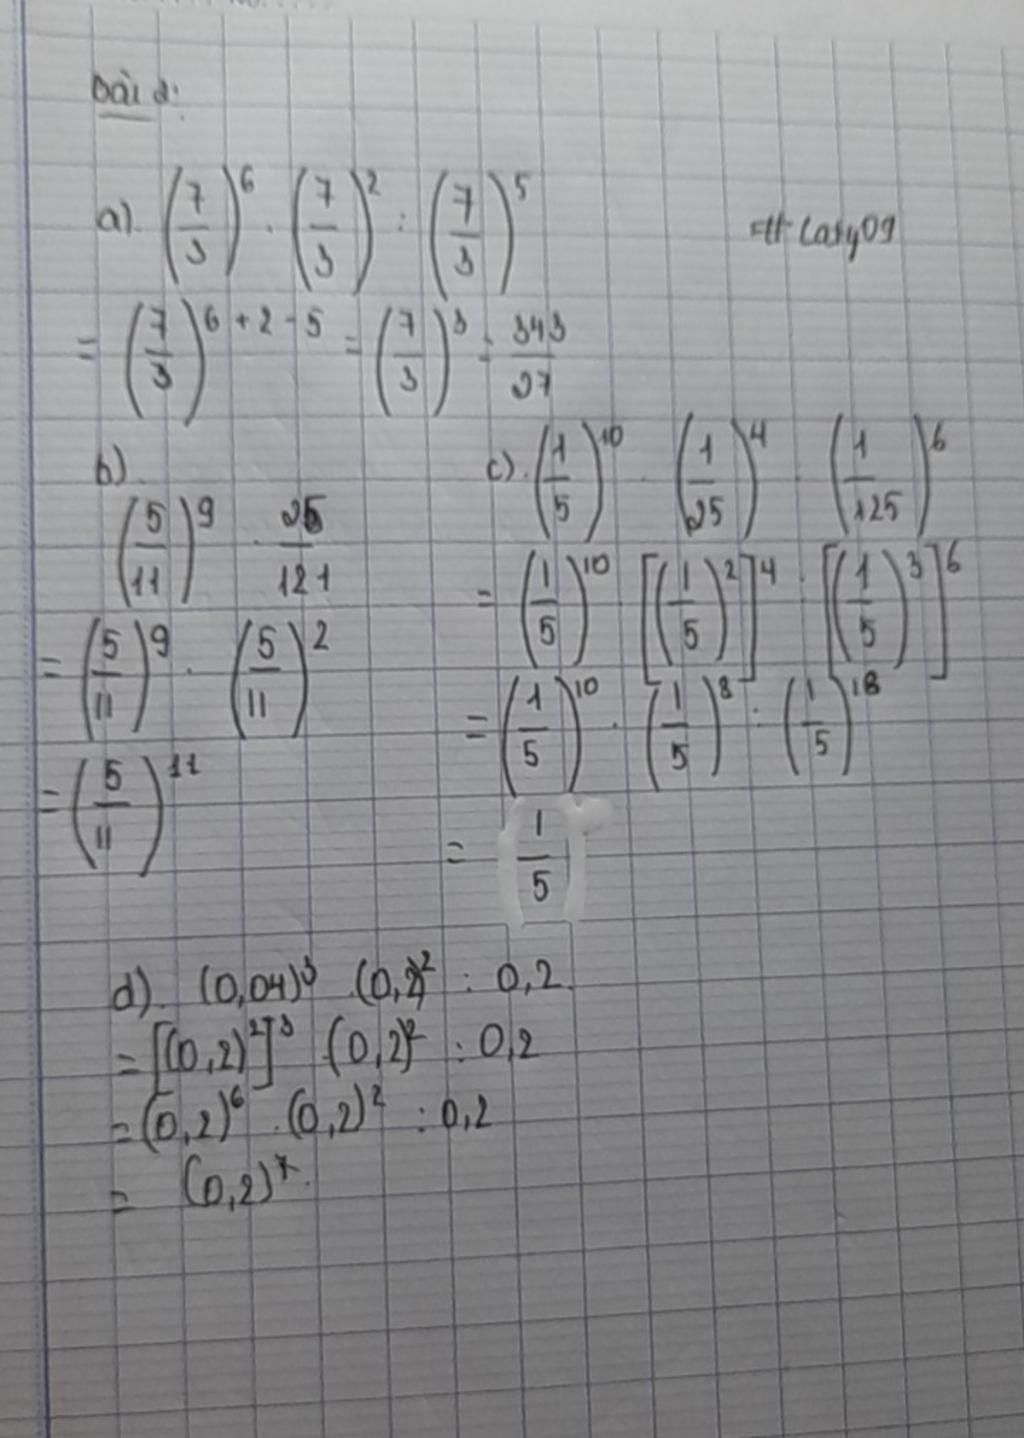 bài 2:
a). (7/3)^6 . (7/3)^2 : (7/3)^5
# Casy09
= (7/3)^6 + 2 - 5 = (7/3)^3 = 343/27
b)
(5/11)^9 . 25/121
= (5/11)^9 . (5/11)^2
= (5/11)^11
c). (1/5)^10 . (1/25)^4 . (1/125)^6
= (1/5)^10 . [(1/5)^2]^4 . [(1/5)^3]^6
= (1/5)^10 . (1/5)^8 : (1/5)^18
= (1/5)
d). (0,04)^3 . (0,2)^2 : 0,2
= [(0,2)^2]^3 . (0,2)^2 : 0,2
= (0,2)^6 . (0,2)^2 : 0,2
= (0,2)^7.